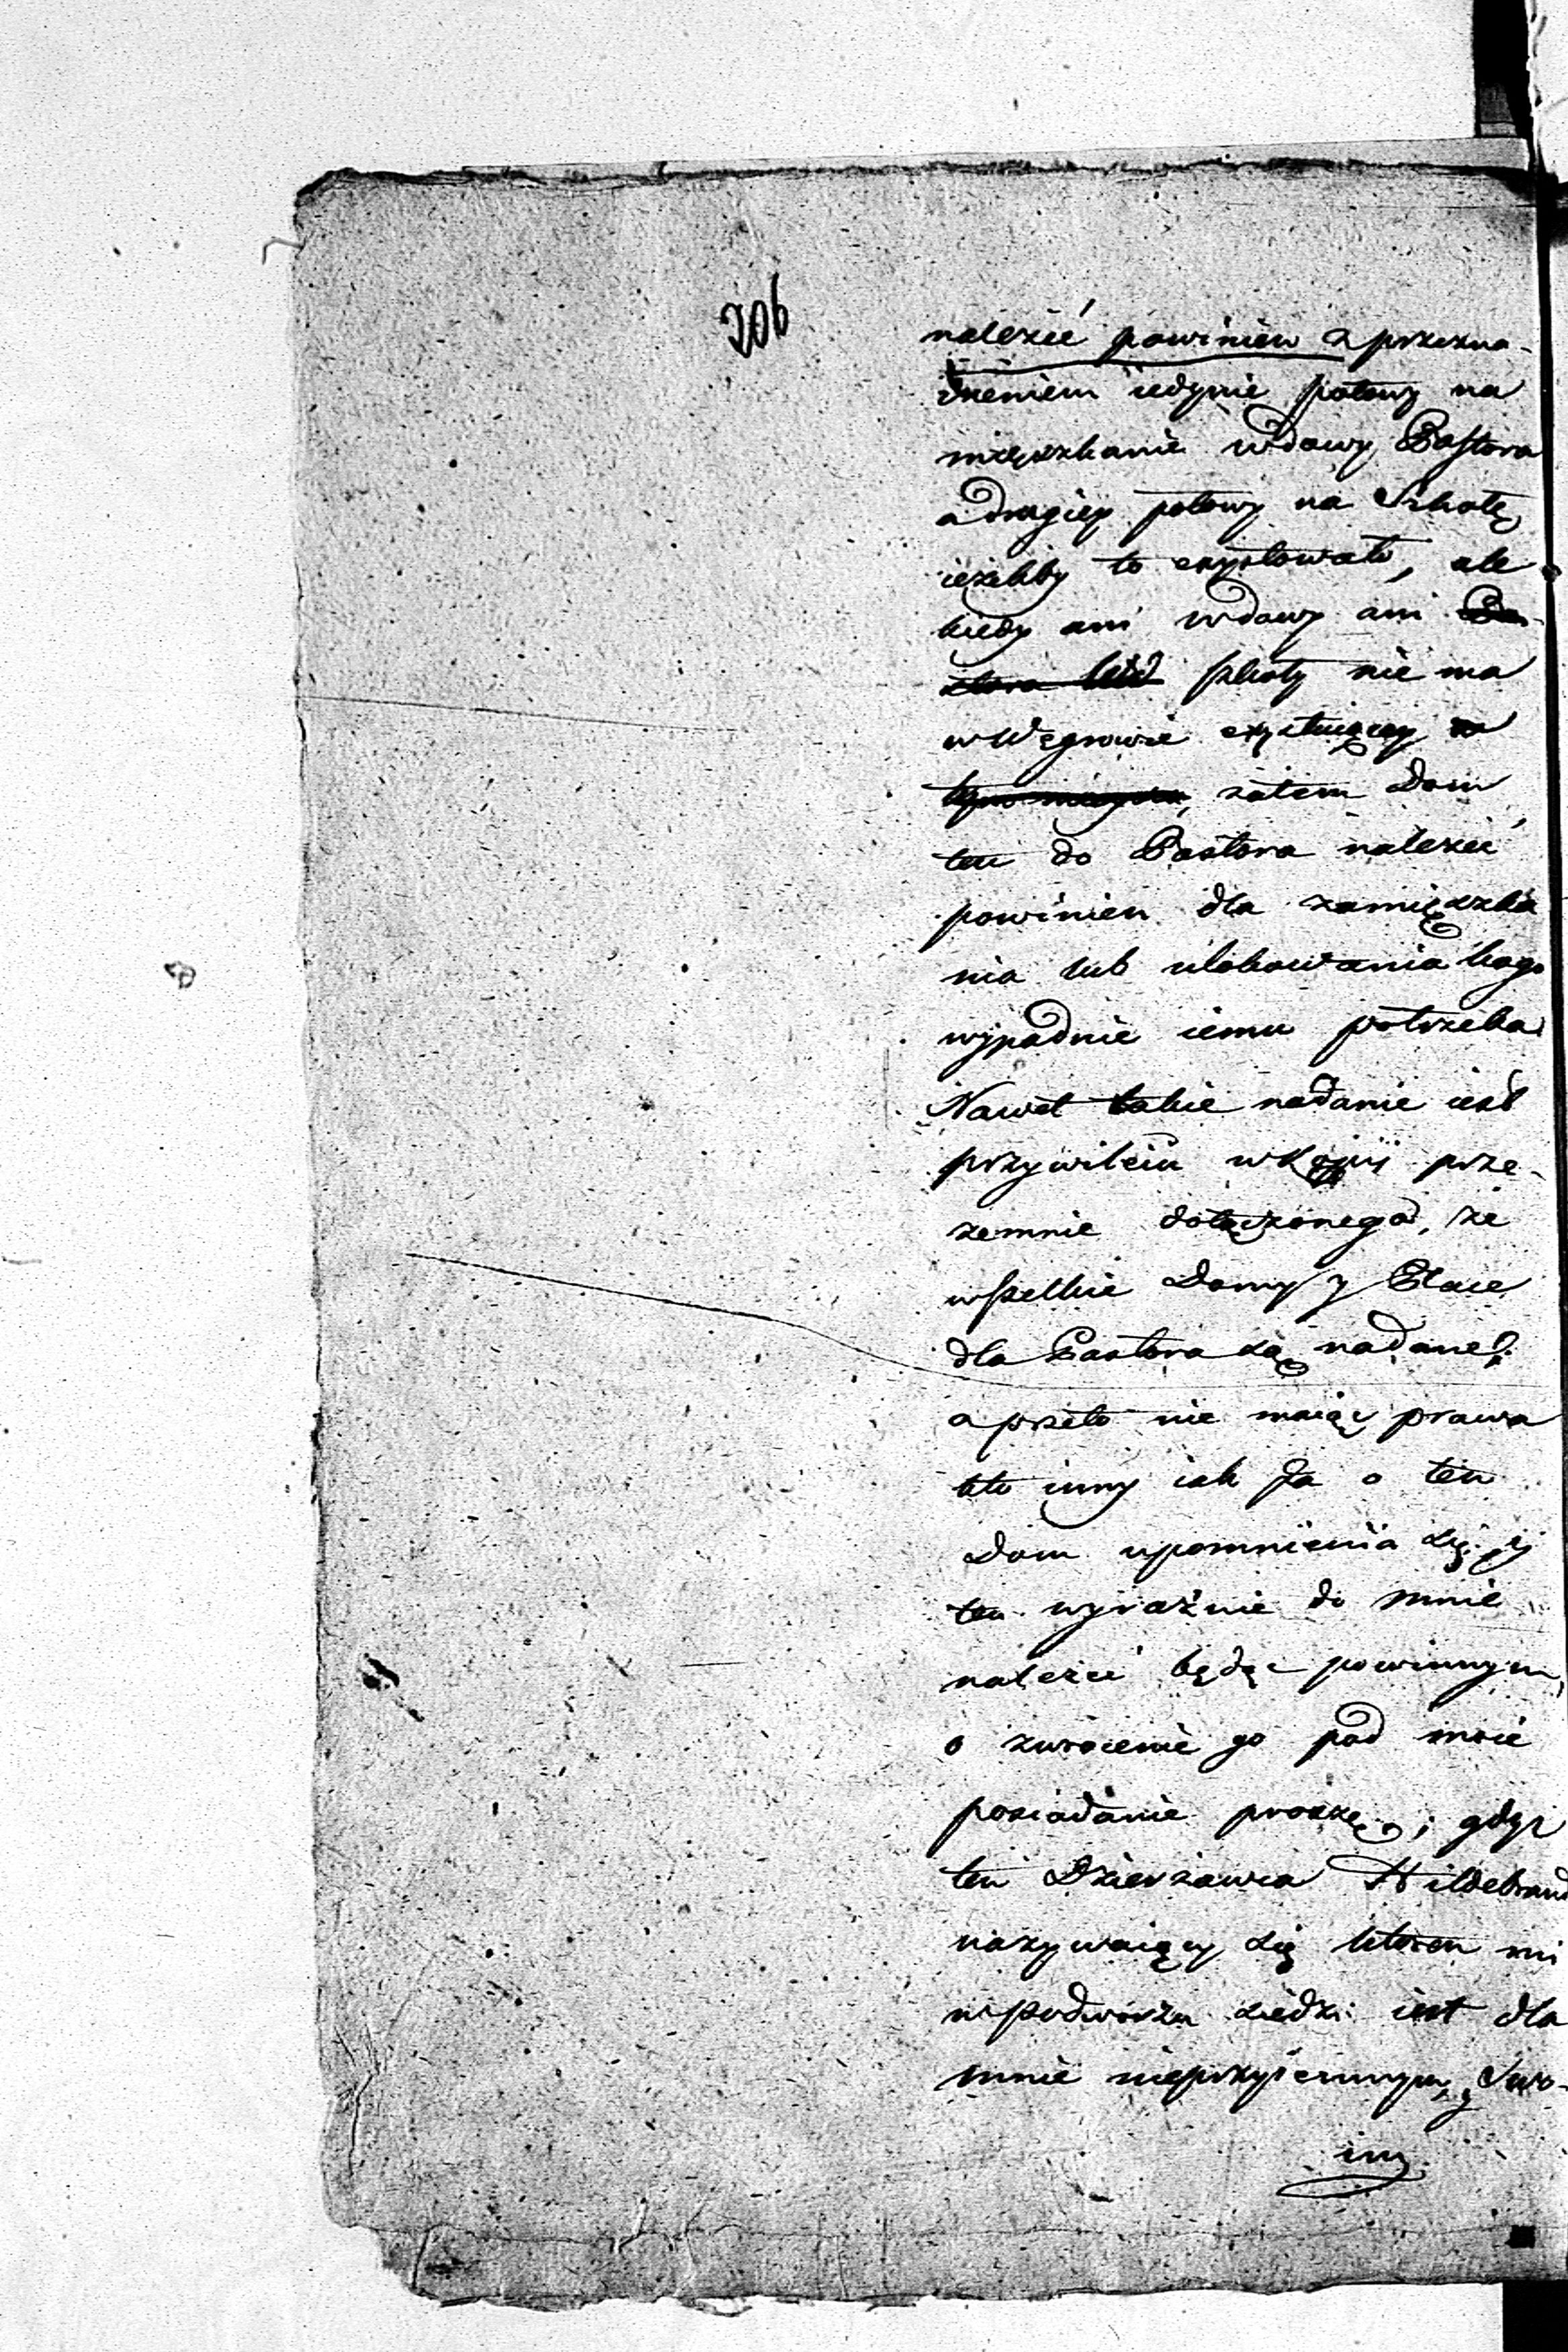 206
należeć powinien z przezna-
czeniem iedynie połowy na
mięszkanie wdowy Pastora
a drugiey połowy na Szkołę
ieżeliby to exystowało, ale
kiedy ani wdowy ani
szkoły nie ma
w Węgrowie exystuiącey
zatem Dom
ten do Pastora należeć
powinien dla zamięszka
nia lub ulokowania kogo
wypadnie iemu potrzeba
Nawet takie nadanie iest
przywileiu w Kopii prze-
zemnie dołączonego, że
wszelkie Domy y Place
dla Pastora są nadane;
a przeto nie maiąc prawa
kto inny iak Ja o ten
Dom upomnienia się, y
ten wyraźnie do mnie
należeć będąc powinnym,
o zwrócenie go pod moie
posiadanie proszę; gdyż
ten Dzierżawca Hildebrand
nazywaiący się który mi
w podwórzu siedzi iest dla
mnie nieprzyiemnym, y swo-
im